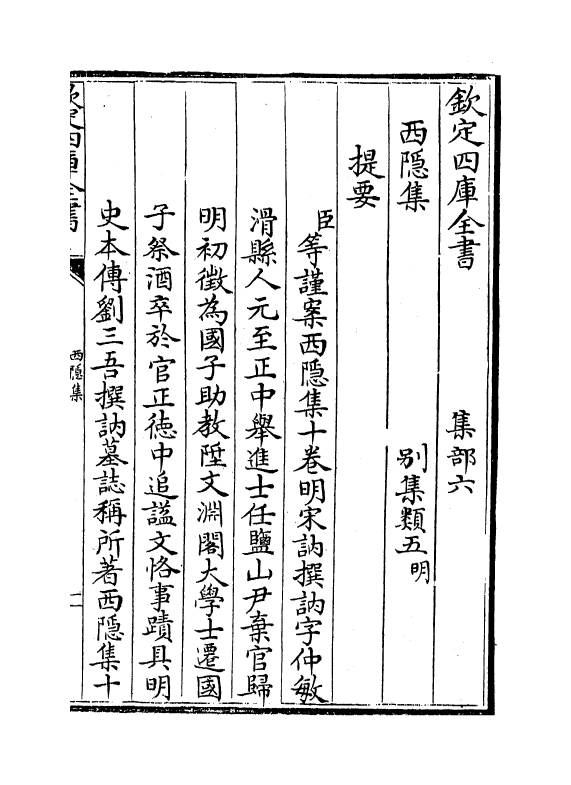 欽定四庫全書　集部六
西隱集　別集類五明
提要
臣等謹案西隱集十卷明宋訥撰訥字仲敏
滑縣人元至正中舉進士任鹽山尹棄官歸
明初徵為國子助教陞文淵閣大學士遷國
子祭酒卒於官正徳中追謚文恪事蹟具明
史本傳劉三吾撰訥墓誌稱所著西隱集十
欽定四庫全書
西隱集